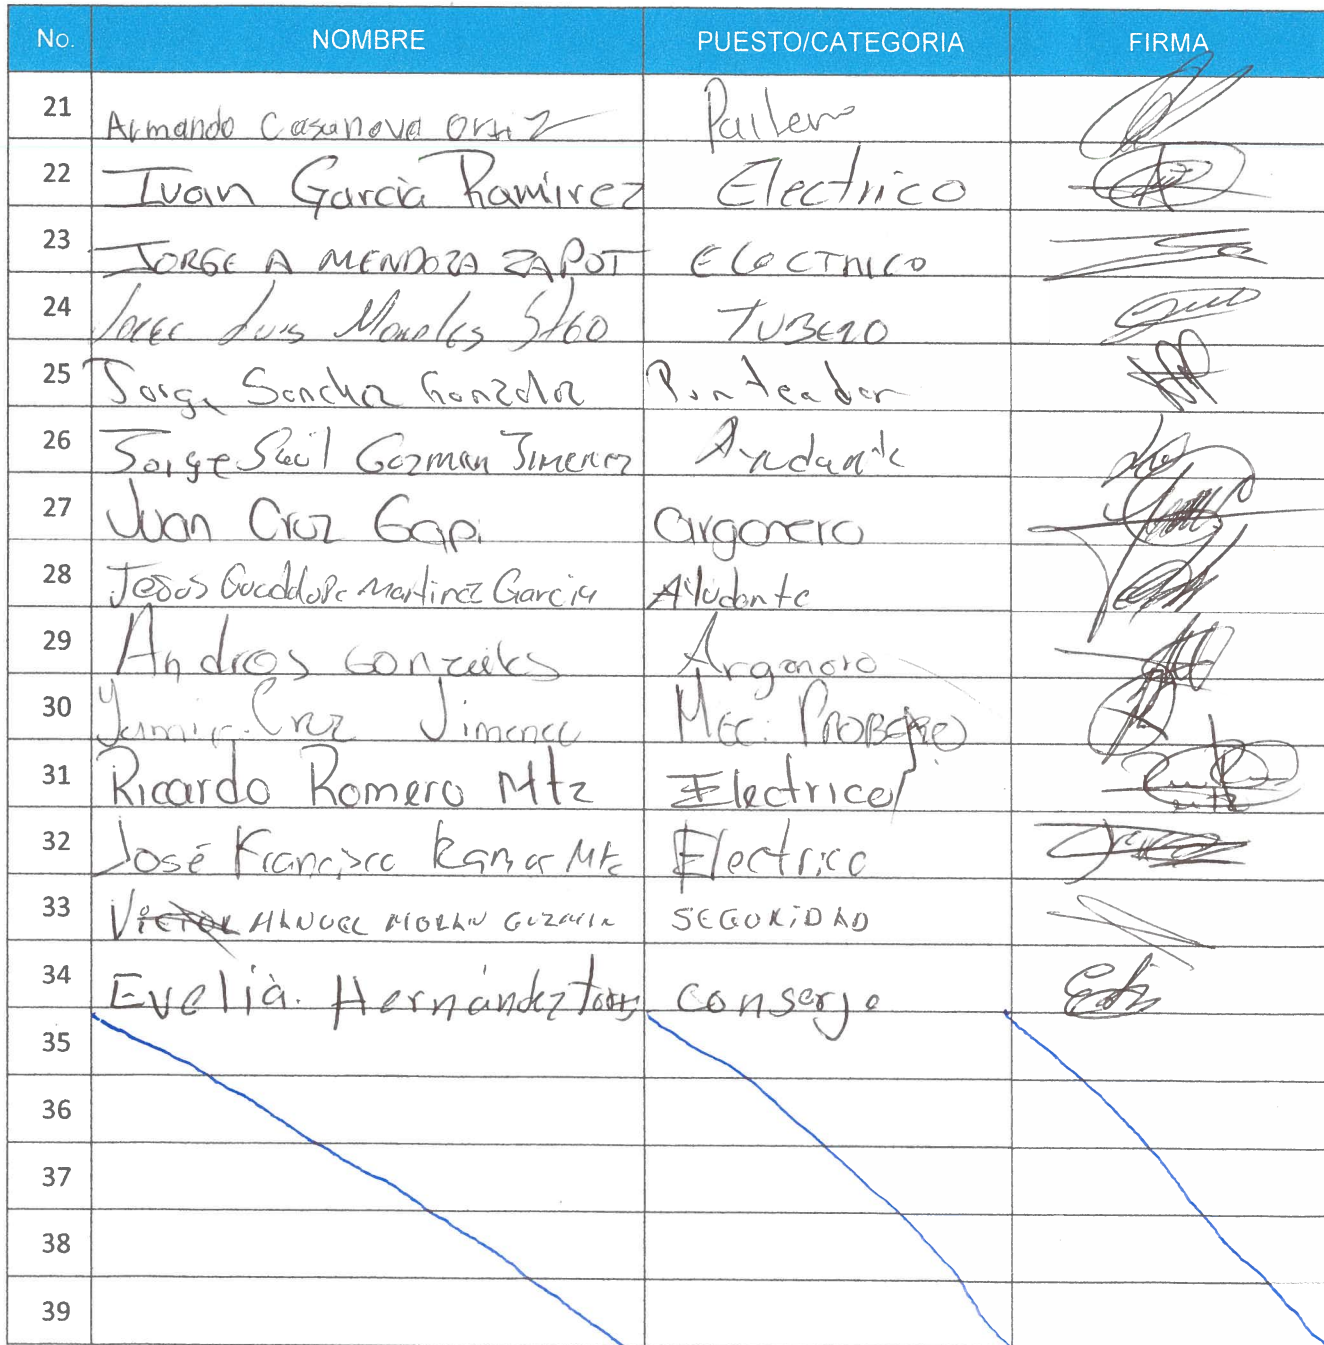 No. NOMBRE PUESTO/CATEGORIA FIRMA
21 Armando Casanova Ortiz Pailero
22 Ivan García Ramirez Electrico
23 JORGE A MENDOZA ZAPOT ELECTRICO
24 Jorge Luis Morales Stgo TUBERO
25 Jorge Sanchez Gonzalez Punteador
26 Jorge Saúl Guzman Jimenez Ayudante
27 Juan Cruz Gapi argonero
28 Jesus Guadalupe Martinez Garcia Ayudante
29 Andres Gonzales Argonero
30 Cruz Jimenez Mec. PROBERO
31 Ricardo Romero Mtz Electrico
32 José Francisco Mtz Electrico
33 VICTOR MANUEL MORAN GUZMAN SEGURIDAD
34 Evelia. Hernández Torres conserje
35
36
37
38
39